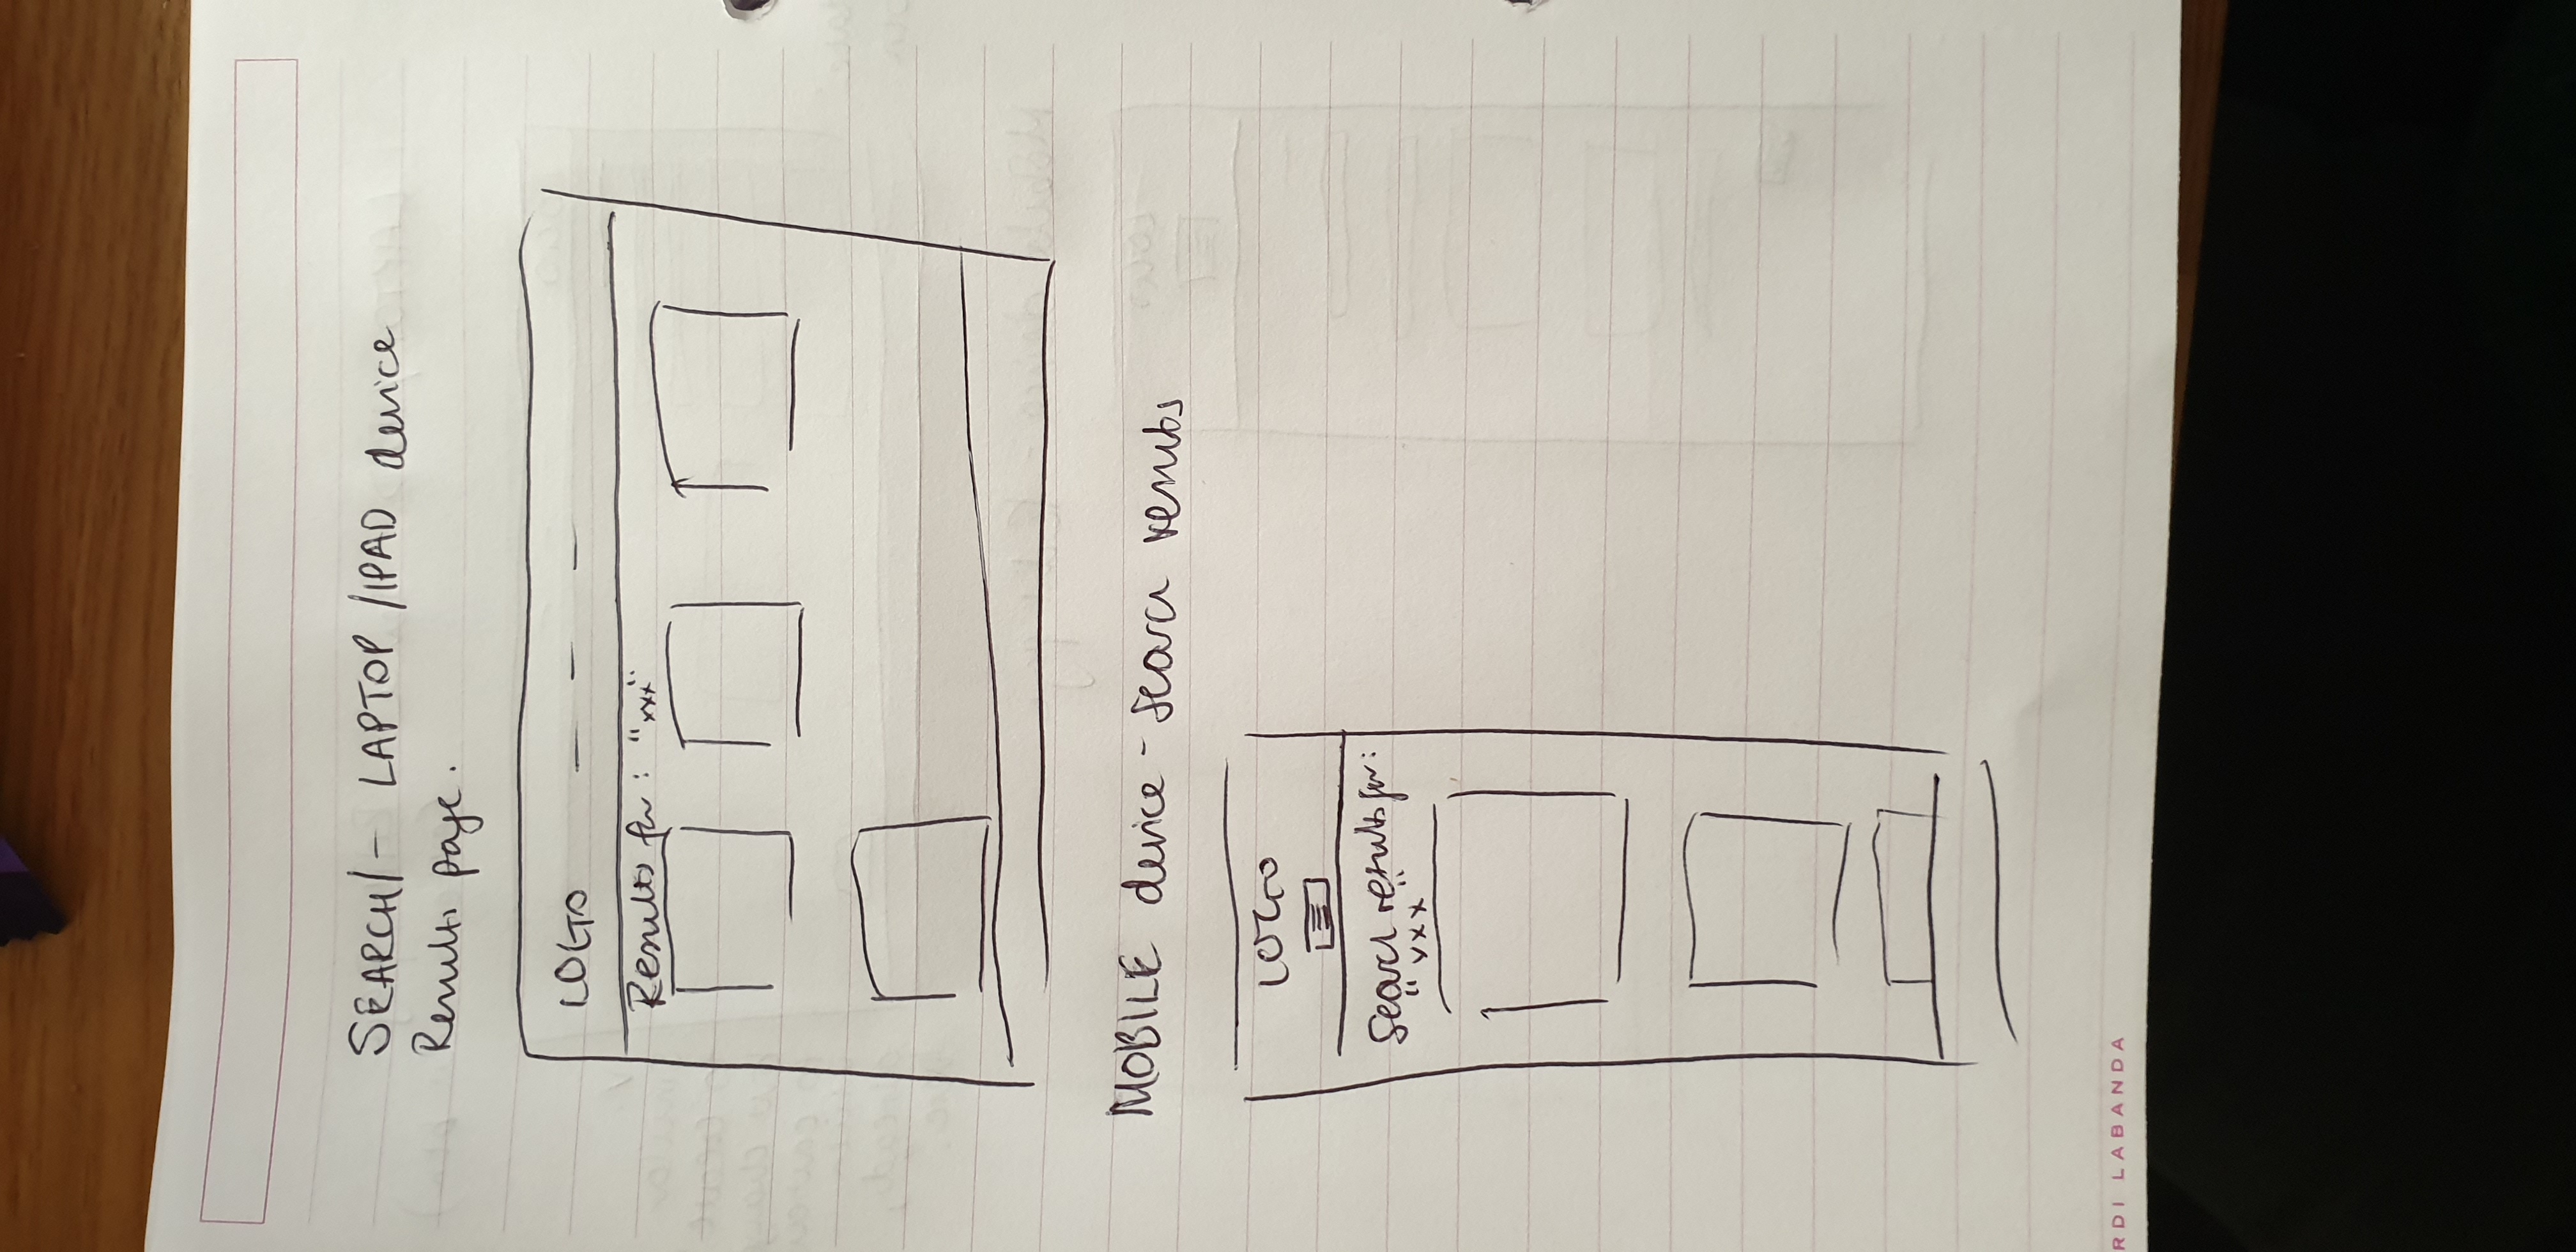 SEARCH/- LAPTOP /IPAD device
Results page.
LOGO
Results for: "xxx"
MOBILE device - Search results
LOGO
Search results for:
"xxx"
RDI LABANDA